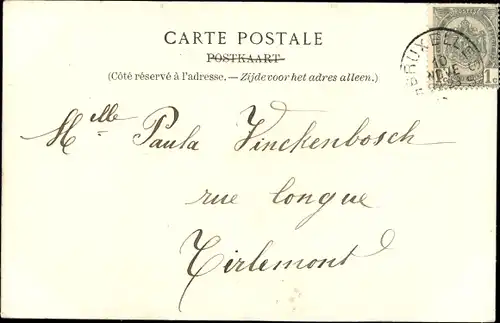 CARTE POSTALE
POSTKAART
(Côté réservé à l'adresse. — Zijde voor het adres alleen.)
BRUXELLES
10
NOVE
1
Melle Paula Vinckenbosch
rue longue
Tirlemont